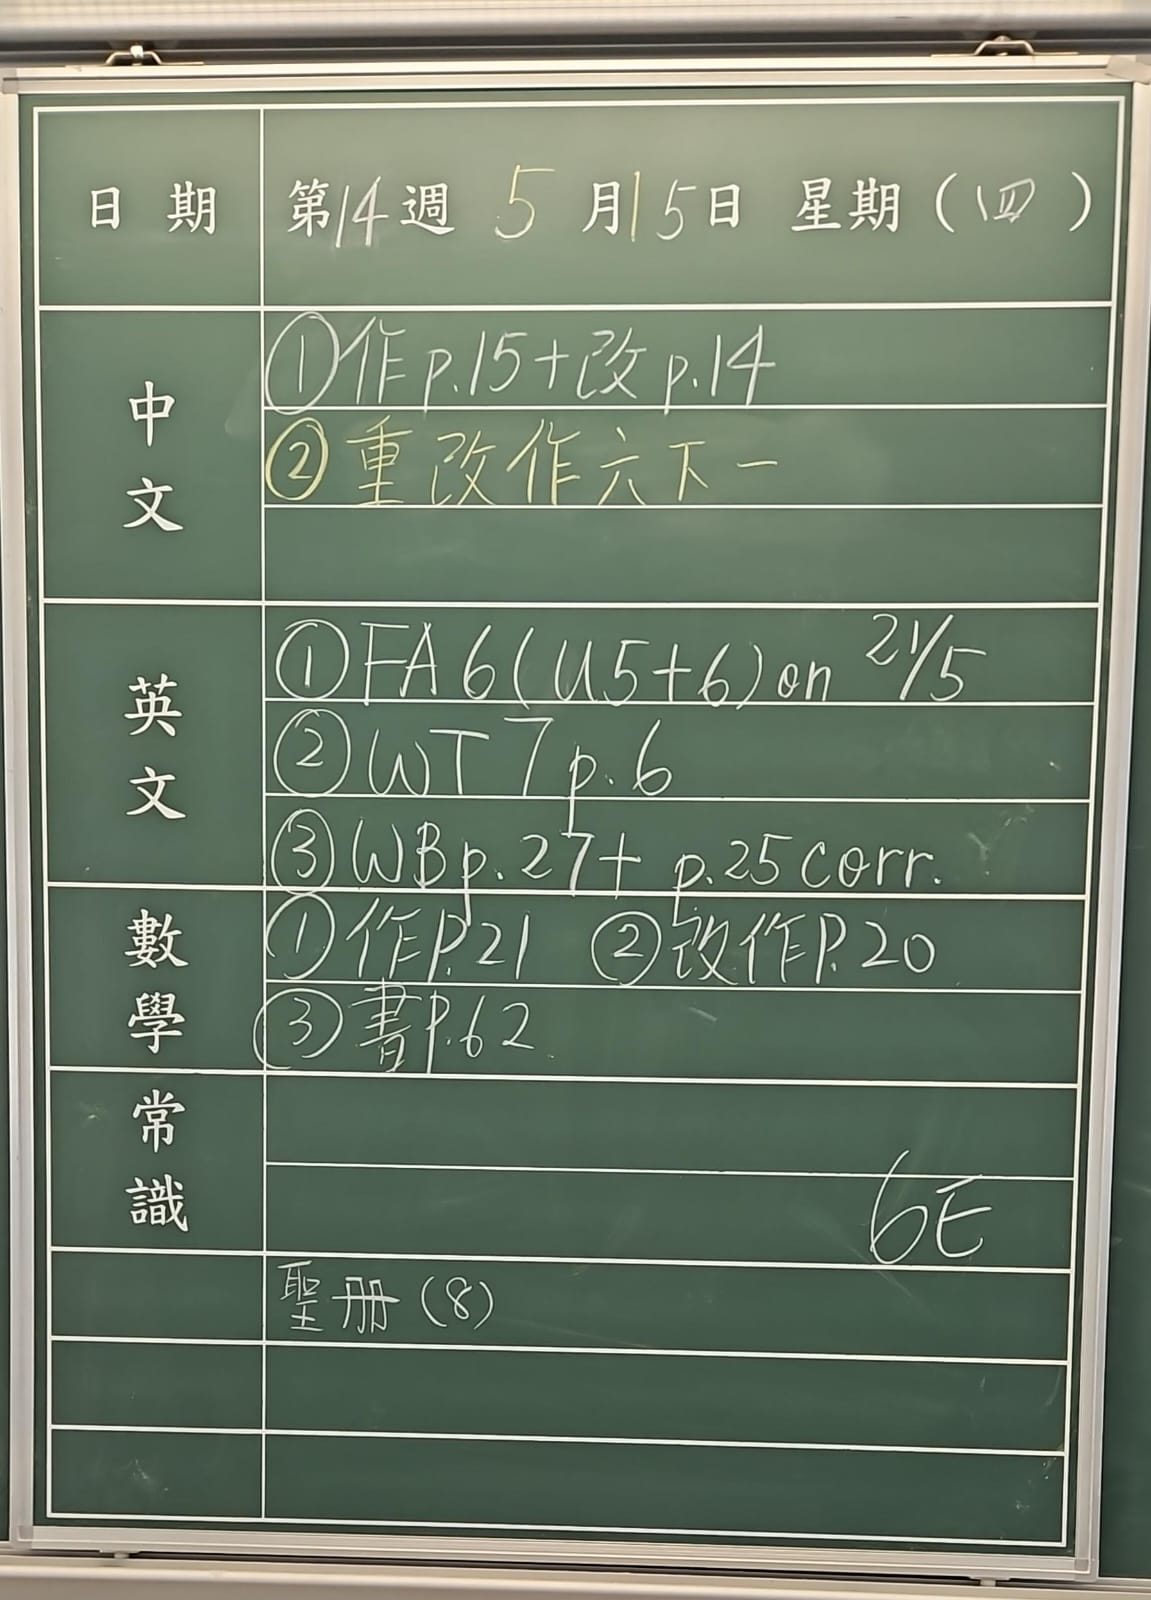 日期 第14週 5月15日 星期(四)
中文
①作p.15+改p.14
②重改作六下一
英文
①FA6(U5+6)on 21/5
②WT7p.6
③WBp.27+ p.25corr.
數學
①作P.21 ②改作P.20
③書P.62
常識
6E
聖册(8)